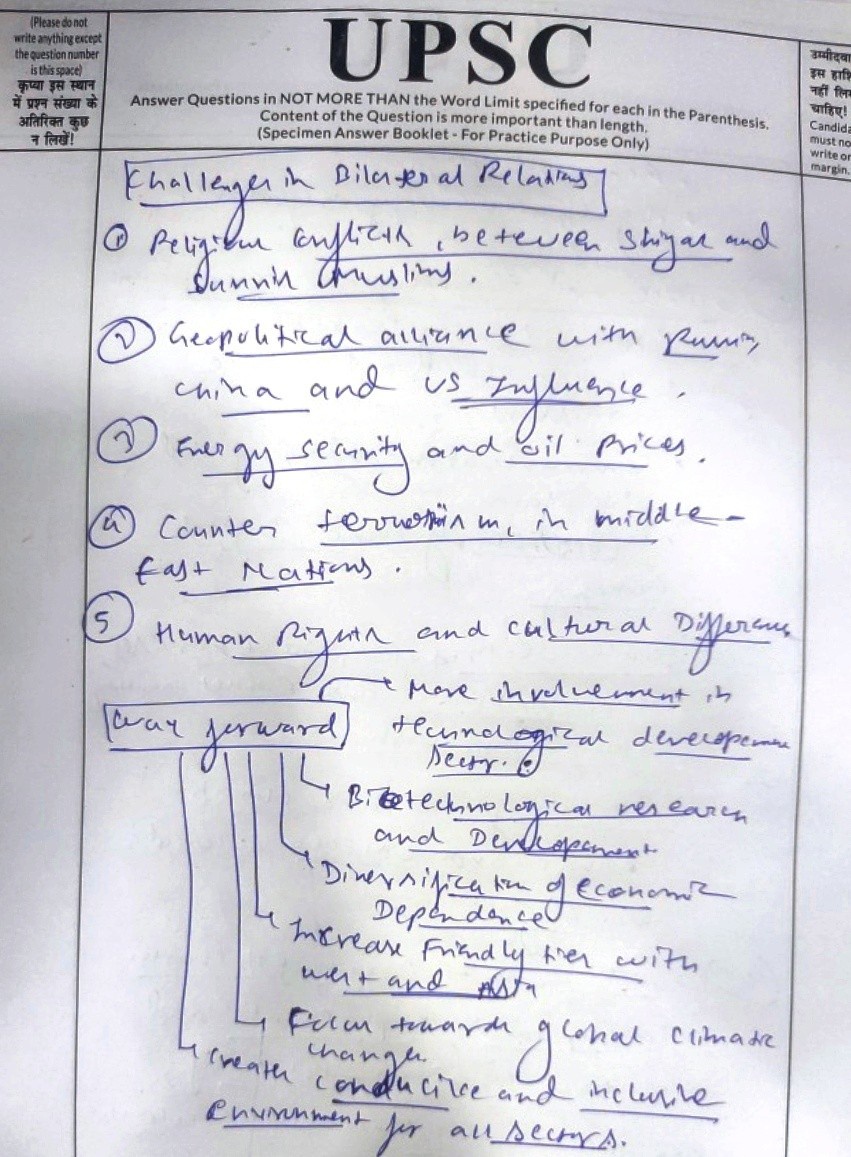 (Please do not
write anything except
the question number
is this space)
कृप्या इस स्थान
में प्रश्न संख्या के
अतिरिक्त कुछ
न लिखें!
UPSC
Answer Questions in NOT MORE THAN the Word Limit specified for each in the Parenthesis.
Content of the Question is more important than length.
(Specimen Answer Booklet - For Practice Purpose Only)
उम्मीदवा
इस हाशि
नहीं लि
चाहिए!
Candida
must no
write or
margin.
Challenges in Bilateral Relations
① Religious conflicts, between Shiyas and
Sunnis Muslims.
② Geopolitical alliance with Russia,
China and US Influence.
③ Energy security and oil prices.
④ Counter terrorism, in middle-
East Nations.
⑤ Human Rights and cultural Differences
Way forward
More involvement in
technological developement
Sector.
Biotechnological research
and Developement
Diversification of economic
Dependence
Increase Friendly ties with
west and Asia
Focus towards global climatic
changes.
Create conducive and inclusive
Environment for all sectors.